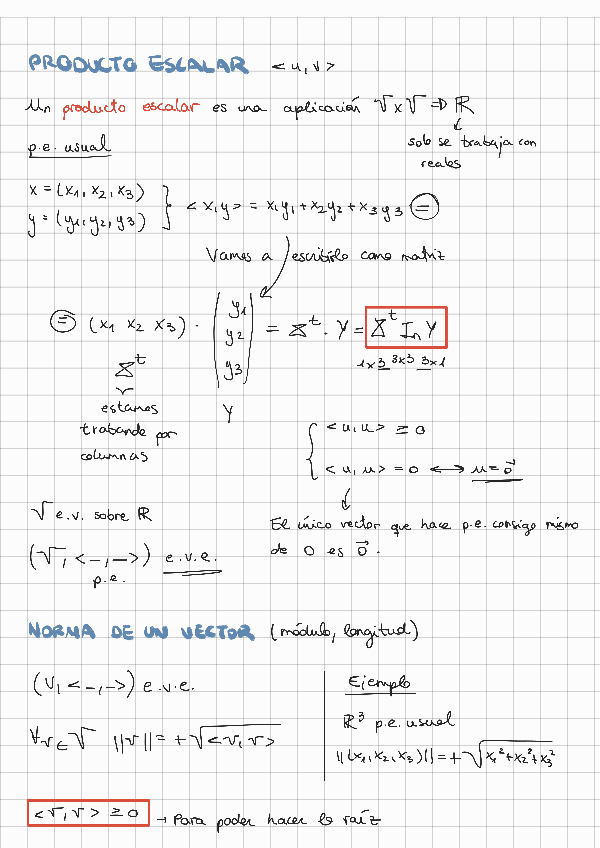 PRODUCTO ESCALAR <u,v>
Un producto escalar es una aplicación V x V ⇒ ℝ
↓
solo se trabaja con
reales
p.e. usual
x = (x₁, x₂, x₃)
y = (y₁, y₂, y₃)
} <x,y> = x₁y₁ + x₂y₂ + x₃y₃ (=)
Vamos a escribirlo como matriz
(=) (x₁ x₂ x₃) · (y₁ y₂ y₃) = Xᵗ · Y = Xᵗ Iₙ Y
1x3 3x3 3x1
Xᵗ
Y
estamos
trabando por
columnas
{ <u,u> ≥ 0
<u,u> = 0 ⟷ u = 0⃗
↓
El único vector que hace p.e. consigo mismo
de 0 es 0⃗.
V e.v. sobre ℝ
(V, <-,->) e.v.e.
p.e.
NORMA DE UN VECTOR (módulo, longitud)
(V, <-,->) e.v.e.
∀v ∈ V ||v|| = +√<v,v>
Ejemplo
ℝ³ p.e. usual
||(x₁,x₂,x₃)|| = +√x₁²+x₂²+x₃²
<v,v> ≥ 0 → Para poder hacer la raíz